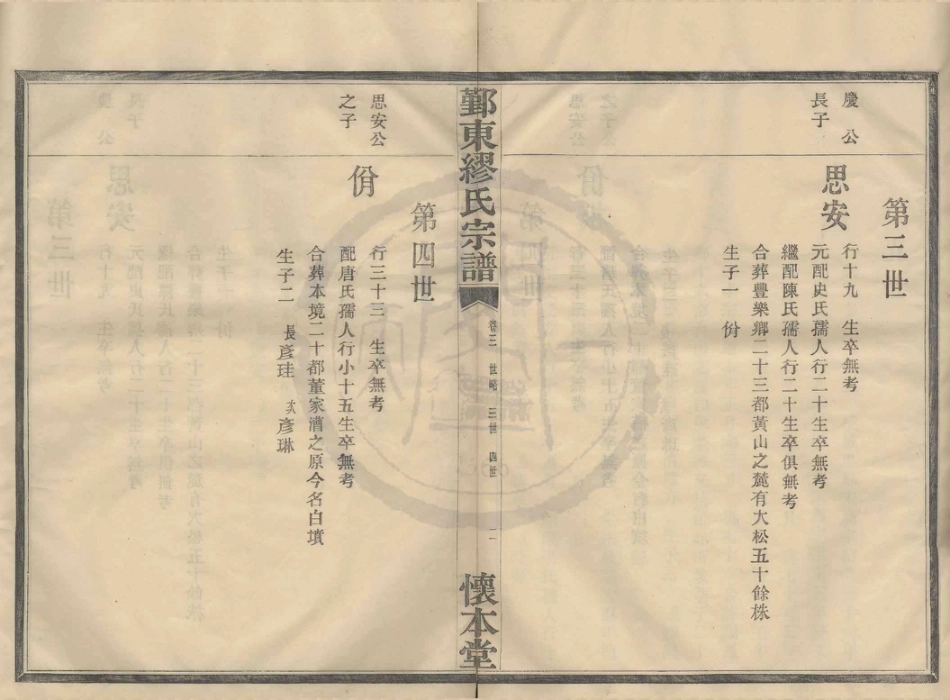 第三世
慶公
長子
思安
行十九 生卒無考
元配史氏孺人行二十生卒無考
繼配陳氏孺人行二十生卒俱無考
合葬豐樂鄉二十三都黃山之麓有大松五十餘株
生子一 佾
鄞東繆氏宗譜
卷三 世略 三世 四世
懷本堂
第四世
思安公
之子
佾
行三十三 生卒無考
配唐氏孺人行小十五生卒無考
合葬本境二十都董家漕之原今名白墳
生子二 長彥珪 次彥琳